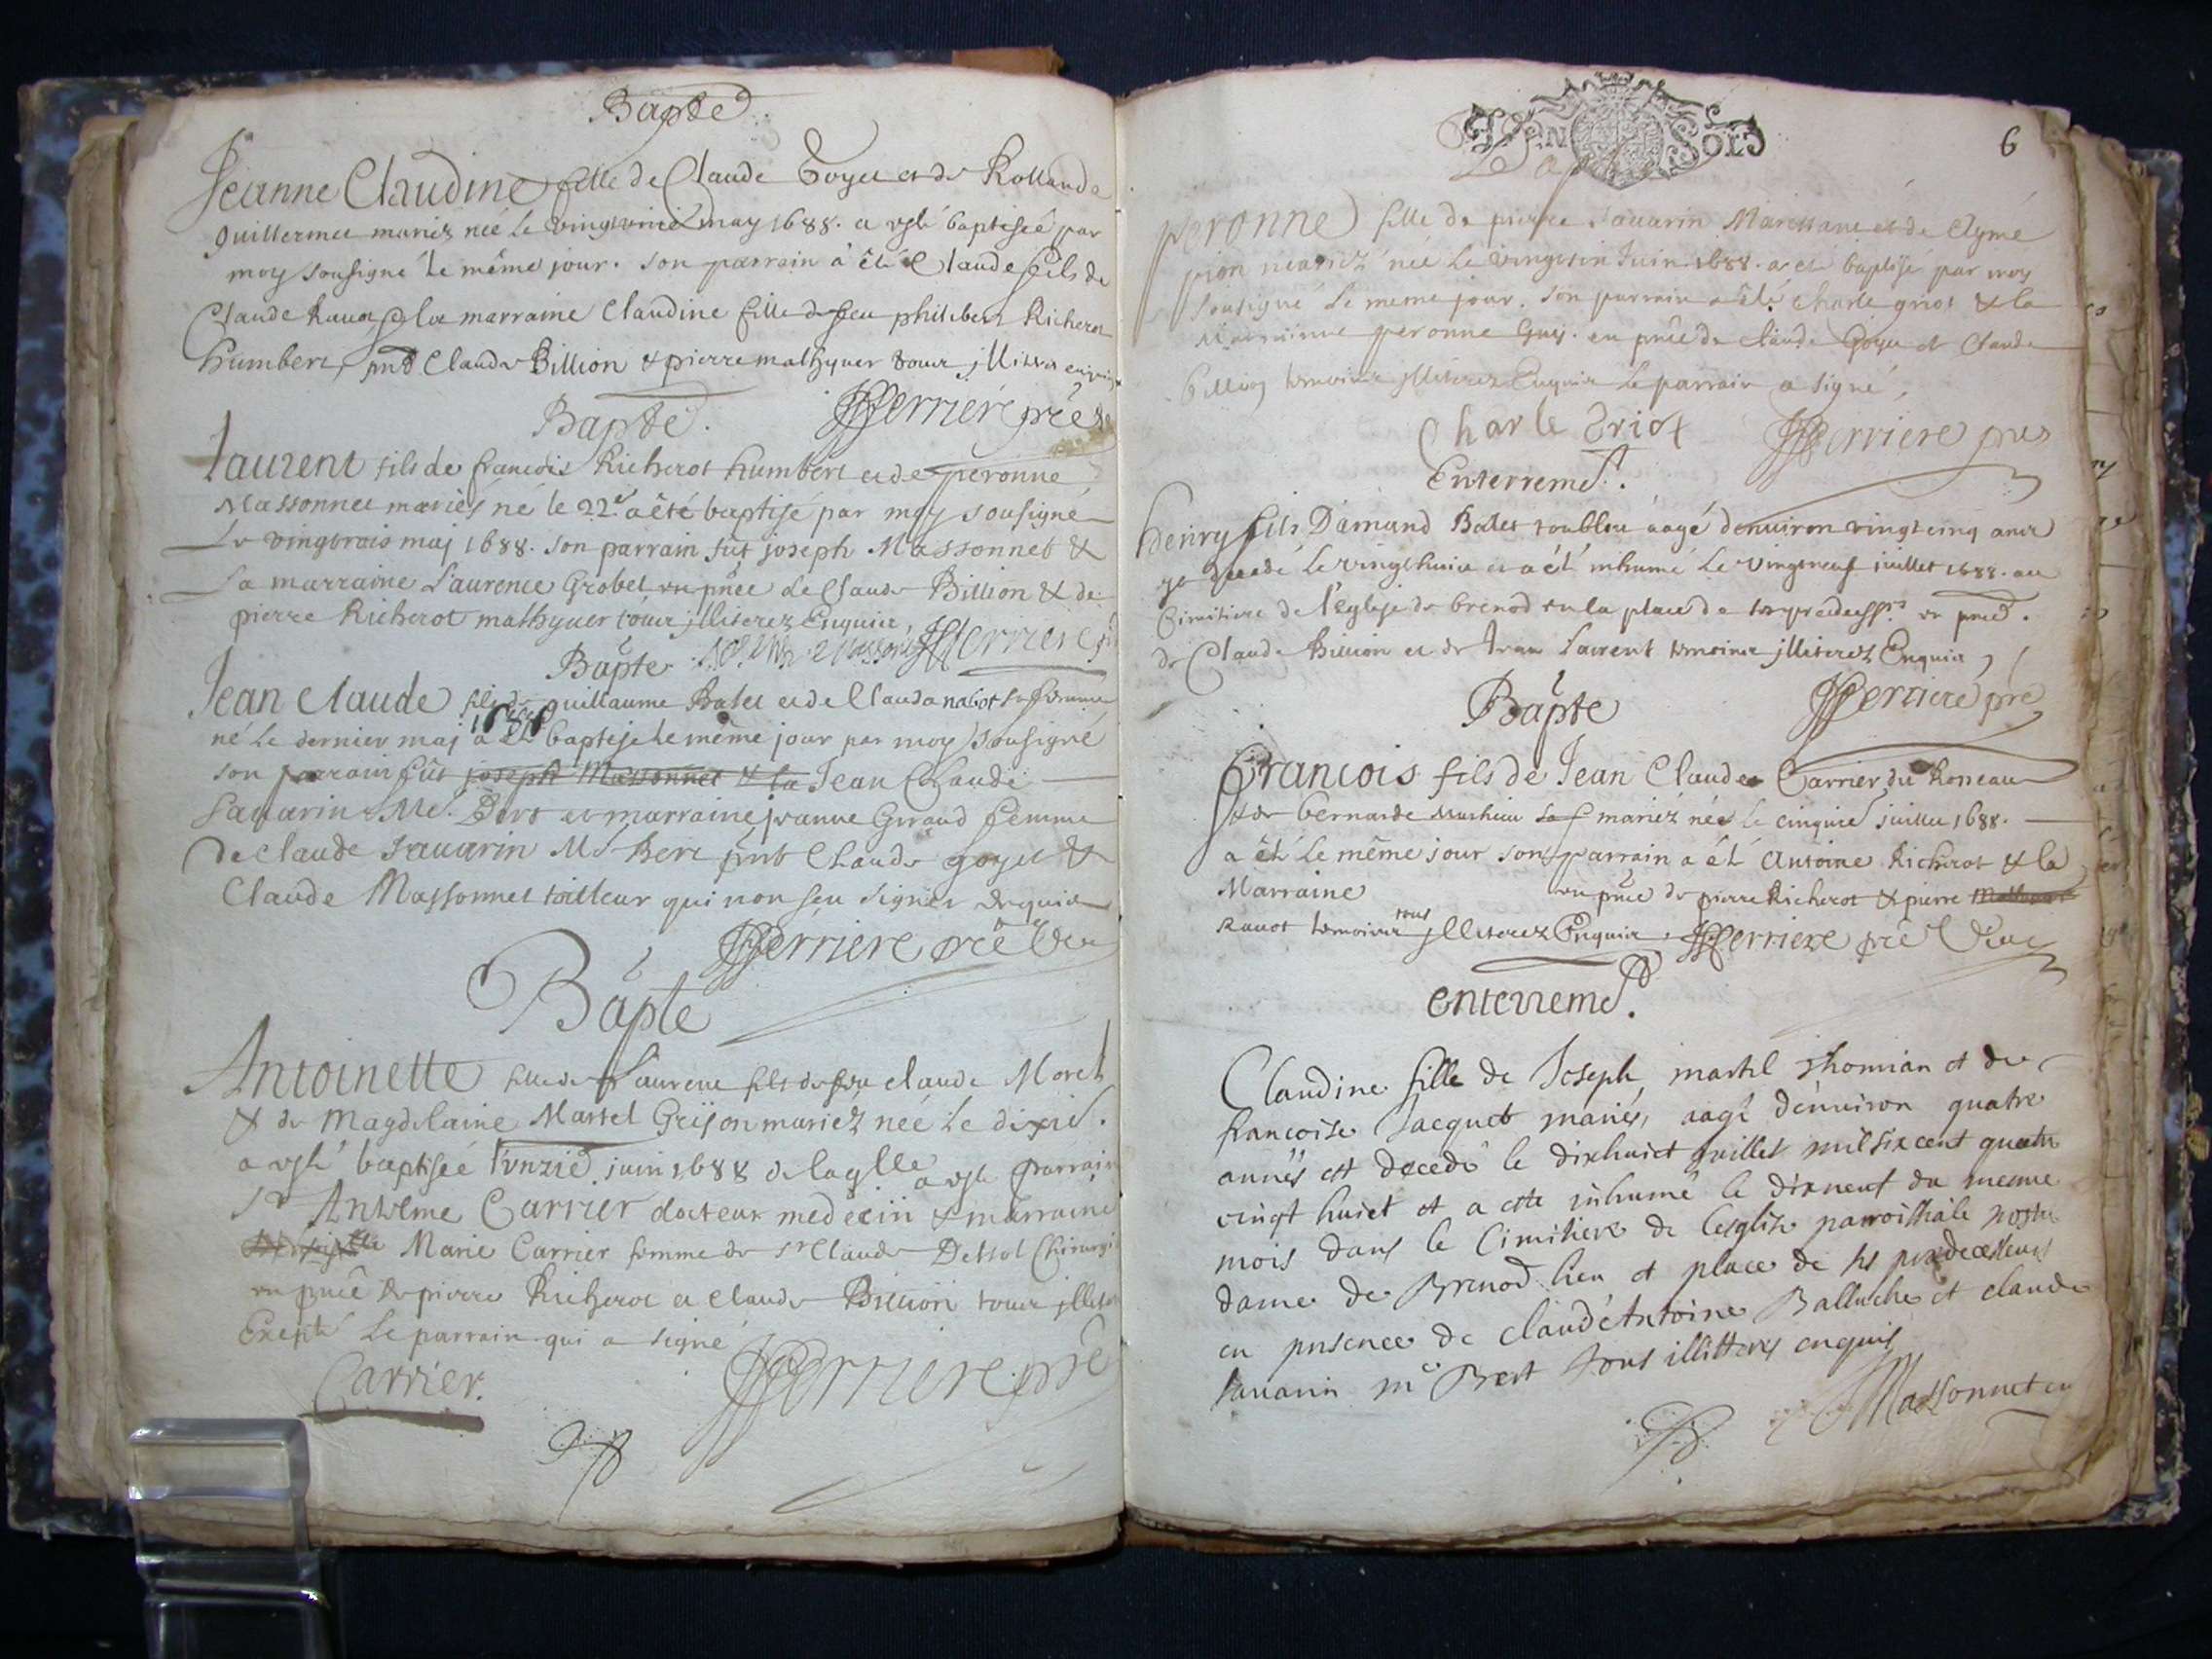 Bapte
Jeanne Claudine fille de Claude Goyet et de Rollande
Guillermet mariez née le may 1688. a esté baptisée par
moy sousigné le même jour. son parrain à été Claude fils de
Claude Ravot & la marraine Claudine fille de feu philibert Richerot
humbert, pnts Claude Billion & pierre mathyuer tous illiterez enquis
JFerriere pre
Bapte.
Laurent fils de francois Richerot humbert et de peronne
Massonnet mariés né le 22e a été baptisé par moy sousigné
le vingtrois maj 1688. son parrain fut joseph Massonnet &
sa marraine Laurence Grobet en pnce de Claude Billion & de
pierre Richerot mathyuer tous illiterez Enquis,
JFerriere
Bapte
Jean Claude fils de guillaume Balet et de Clauda nabot sa femme
1688
né le dernier maj a été baptisé le même jour par moy sousigné
son parrain fût joseph Massonnet & la Jean Claude
Savarin Me. Bert et marraine jeanne Giraud femme
de claude Savarin Me Bert pnts Claude goyet &
Claude Massonnet tailleur qui non seu signer enquis
JFerriere pre
Bapte
Antoinette fille de Laurent fils de feu claude Moret
& de Magdelaine Martel Grison mariez née le dixie.
a esté baptisée l'unzie. juin 1688 de laqlle a esté parrain
Sr Antelme Carrier docteur medecin & marraine
Marie Carrier femme de sr Claude Chirurgi
en pnce de pierre Richerot et claude Billion tous
Exepté le parrain qui a signé
Carrier. JFerriere pre
6
SOLS
peronne fille de pierre Savarin et de Aymé
pion mariez née le vingt Juin 1688. a eté baptisé par moy
sousigné le meme jour. son parrain a été charle griot & la
Marrainne peronne Guy. en pnce de claude Goyet et Claude
billion temoins illiterez Enquis le parrain a signé,
Charle Griot JFerriere pre
Enterremt.
Henry fils Damand Balet aagé denviron vingt cinq ans
decedé le vingthuict et a été inhumé le vingtneuf juillet 1688. au
Cimitiere de l'Eglise de brenod en la place de ses predecessrs en pnce.
de Claude Billion et de Jean Laurent temoins illiterez Enquis,
JFerriere pre
Bapte
Francois fils de Jean Claude Carrier du
& de bernarde mariéz né le cinquie juillet 1688.
a été le même jour son parrain a été Antoine Richerot & la
Marraine en pnce de pierre Richerot & pierre
Ravot temoins tous illiterez Enquis, JFerriere pre
enterremt.
Claudine fille de Joseph martel thomian et de
francoise Jacquet mariés, aagé denuiron quatre
annés est decedé le dixhuict juillet mil six cent quatre
vingt huict et a este inhumé le dixneuf du mesme
mois dans le Cimitiere de lesglise parroissiale nostre
dame de Brenod lieu et place de ses predecesseurs
en presence de claude Antoine Balluche et claude
savarin me Bert tous illitteres enquis
Massonnet